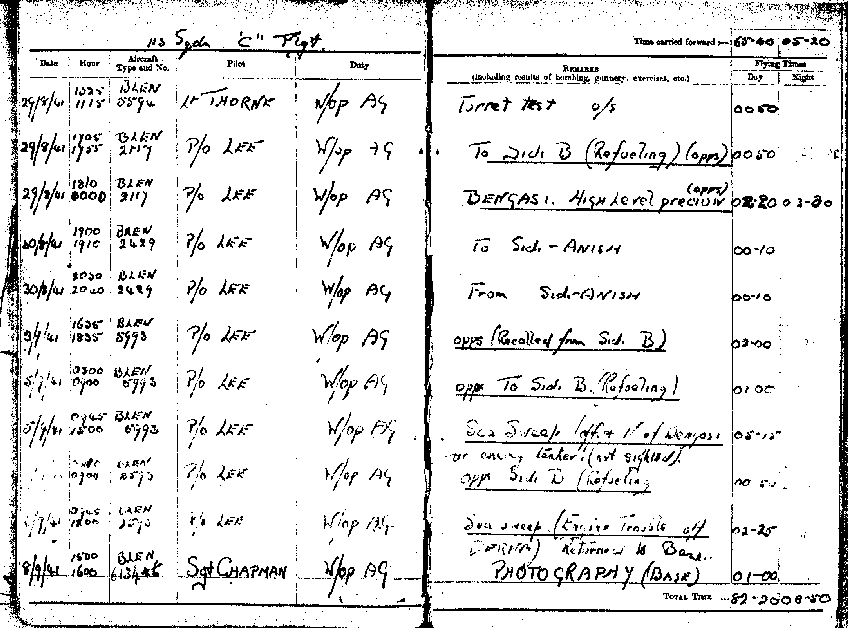 113 Sqdn "C" Flgt.
Time carried forward:— 65-40 05-20
Date Hour Aircraft Type and No. Pilot Duty REMARKS (Including results of bombing, gunnery, exercises, etc.) Flying Times Day Night
29/8/41 1025 1115 BLEN 5594 Lt THORNE W/op AG Turret test o/s 00 50
29/8/41 1705 1755 BLEN 2117 P/o LEE W/op AG To Sidi B (Refueling) (opps) 00 50
29/8/41 1810 0000 BLEN 2117 P/o LEE W/op AG BENGASI. High Level precision (opps) 02-20 03-30
30/8/41 1900 1910 BLEN 2429 P/o LEE W/op AG To Sidi-ANISH 00-10
30/8/41 2030 2040 BLEN 2429 P/o LEE W/op AG From Sidi-ANISH 00-10
3/9/41 1635 1835 BLEN 5993 P/o LEE W/op AG opps (Recalled from Sidi B) 02-00
5/9/41 0800 0900 BLEN 5993 P/o LEE W/op AG opps To Sidi B. (Refueling) 01-00
5/9/41 0945 1500 BLEN 5993 P/o LEE W/op AG Sea Sweep of Bengasi 05-15
or enemy tanker. (not sighted).
0900 BLEN P/o LEE W/op AG opps Sidi B (Refueling 00 50
0945 BLEN P/o LEE W/op AG Sea sweep. (Engine Trouble off 02-25
DERNA) Returned to Base.
8/9/41 1500 1600 BLEN Sgt CHAPMAN W/op AG PHOTOGRAPHY (BASE) 01-00
TOTAL TIME 82-20 08-50